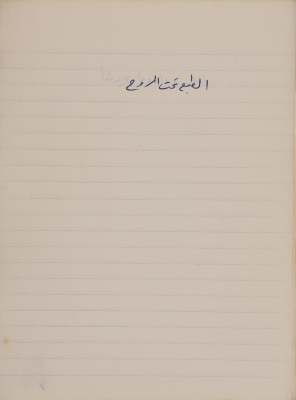 الطبع تحت الروح